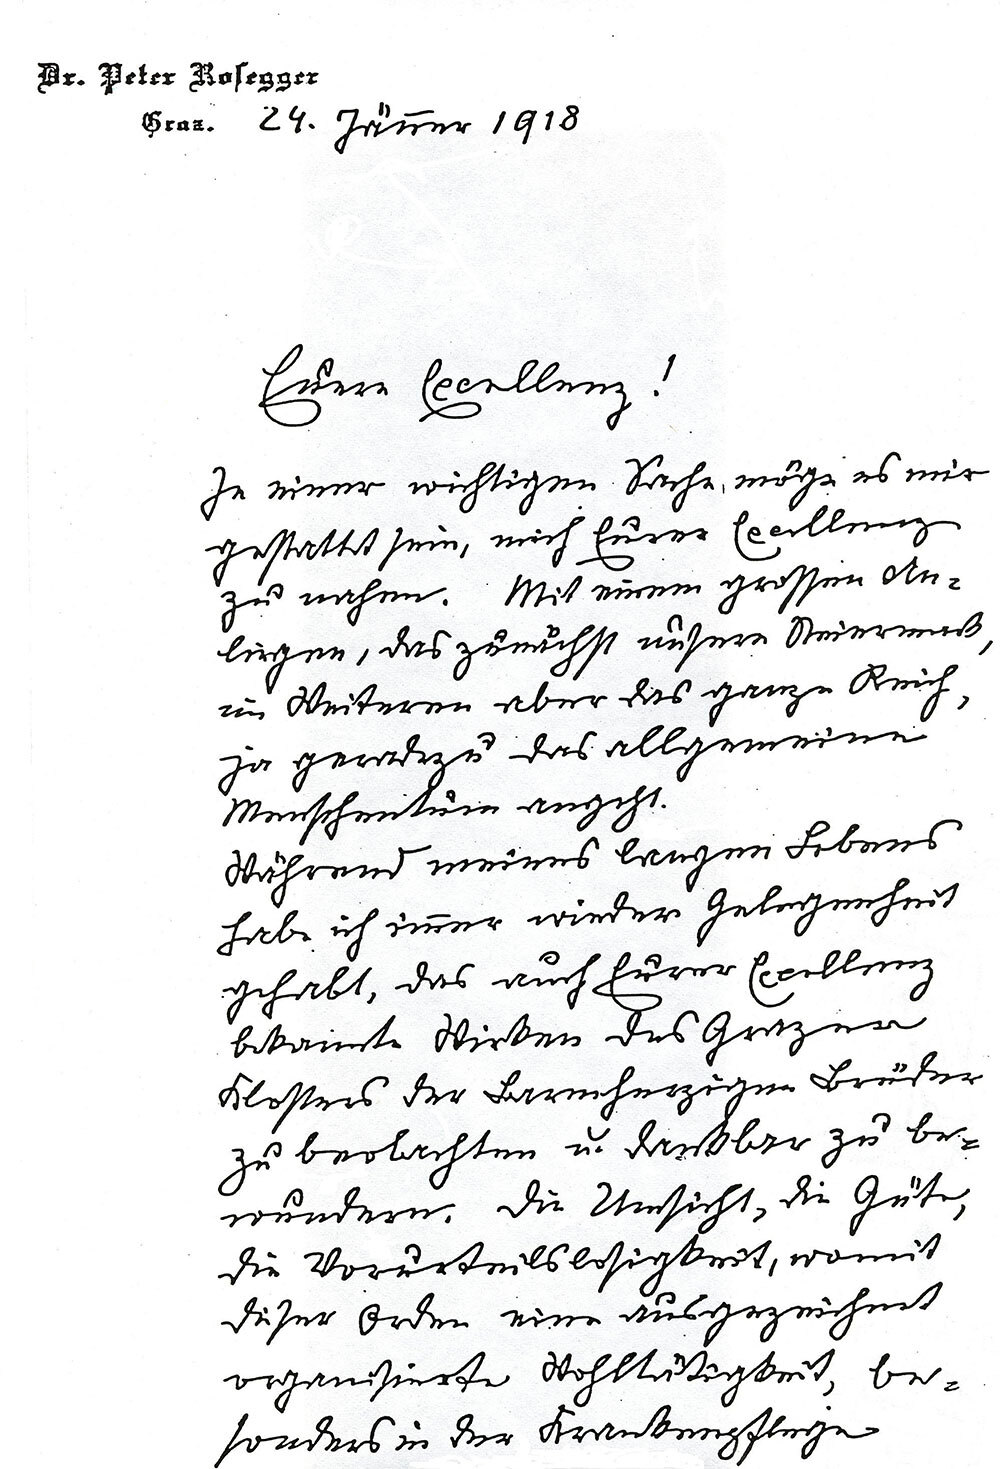 Dr. Peter Rosegger
Graz. 24. Jänner 1918
Euere Excellenz!
In einer wichtigen Sache, möge es mir
gestattet sein, mich Eurer Excellenz
zu nahen. Mit einem grossen An-
liegen, das zunächst unsere Steiermark,
im Weiteren aber das ganze Reich,
ja geradezu das allgemeine
Menschentum angeht.
Während meines langen Lebens
habe ich immer wieder Gelegenheit
gehabt, das auch Eurer Excellenz
bekannte Wirken des Grazer
Klosters der Barmherzigen Brüder
zu beobachten u. dankbar zu be-
wundern. Die Umsicht, die Güte,
die Vorurteilslosigkeit, womit
dieser Orden eine ausgezeichnet
organisierte Wohltätigkeit, be-
sonders in der Krankenpflege